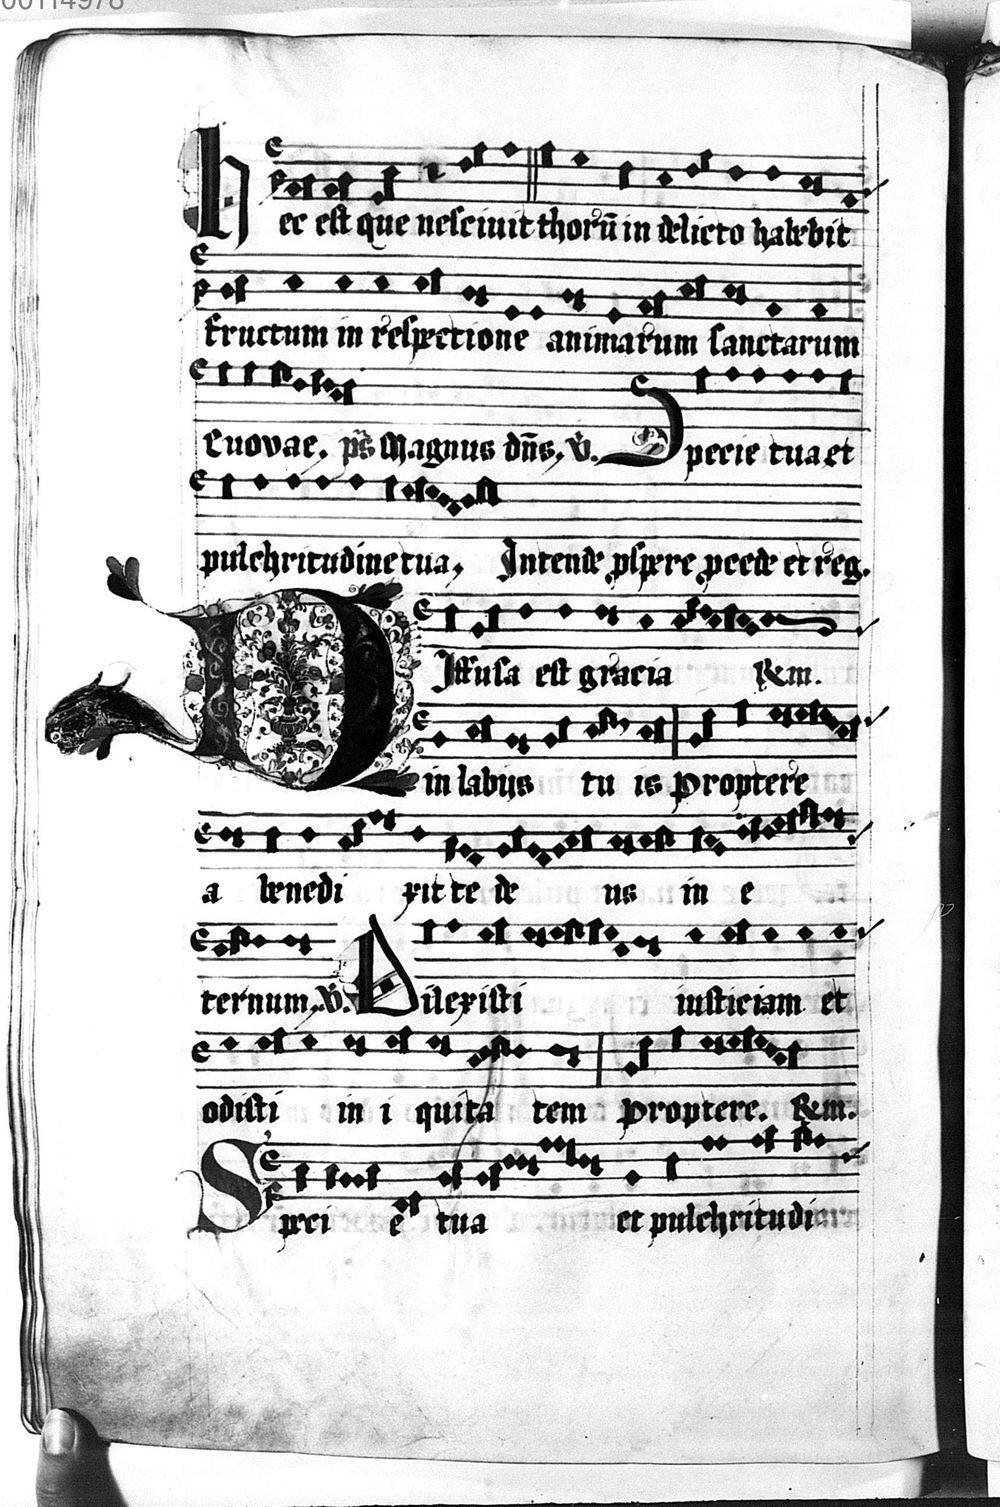 00114978
hec est que nesciuit thorū in delicto habebit
fructum in respectione animarum sanctarum
Euovae. ps̄ Magnus dn̄s. v̄. Specie tua et
pulchritudine tua, Intende pspere pcede et reg.
Diffusa est gracia Rm.
in labijs tu is Proptere
a benedi xit te de us in e
ternum. v̄. Dilexisti iusticiam et
odisti in i quita tem Proptere. Rm.
Speci e tua et pulchritudi